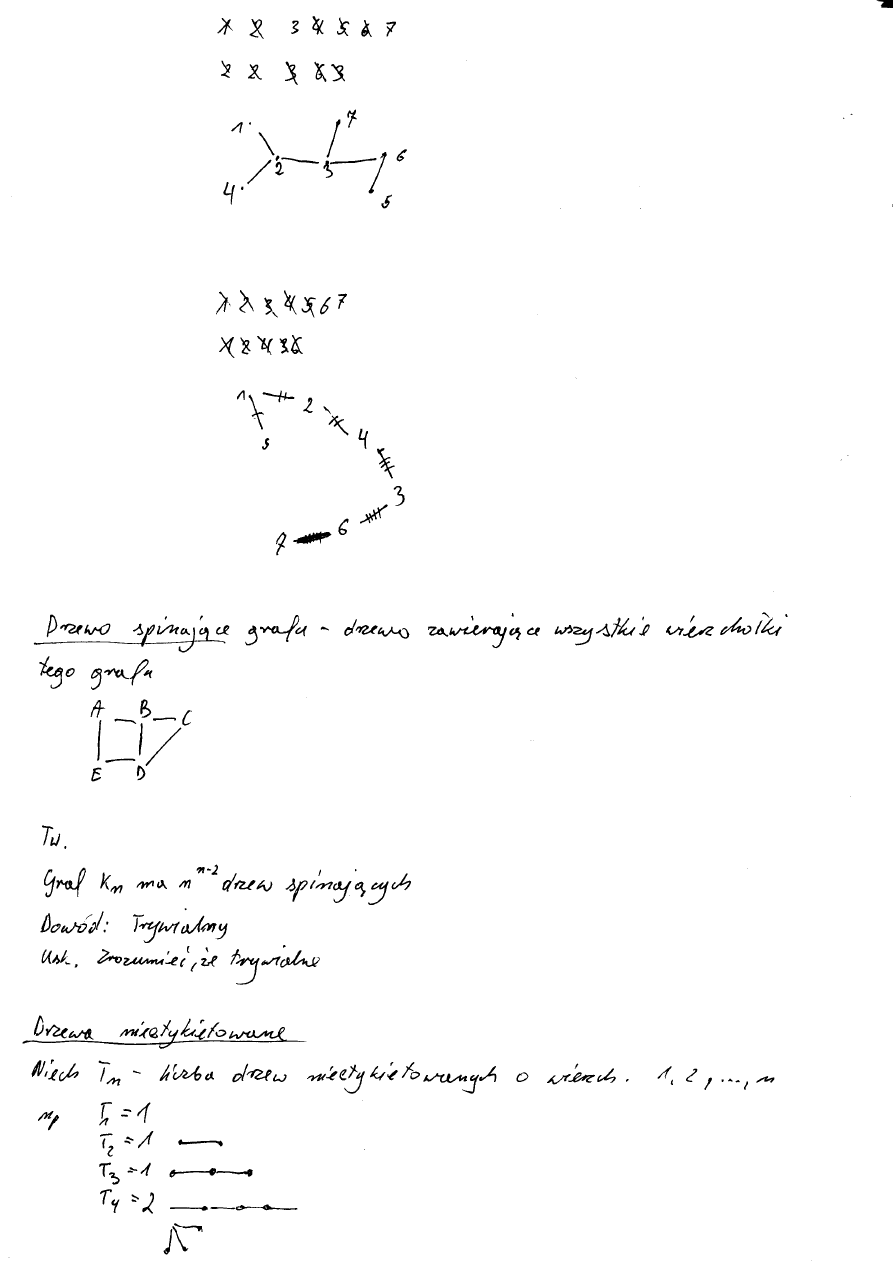 1 2 3 4 5 6 7
2 2 3 6 3
1 7
2 3 6
4 5
1 2 3 4 5 6 7
1 2 4 3 6
1 2
5 4
3
7 6
Drzewo spinające grafu - drzewo zawierające wszystkie wierzchołki
tego grafu
A B C
E D
Tw.
Graf Kn ma n^{n-2} drzew spinających
Dowód: Trywialny
Wsk. Zrozumieć, że trywialne
Drzewa nieetykietowane
Niech Tn - liczba drzew nieetykietowanych o wierzch. 1, 2, ..., n
np T1 = 1
T2 = 1
T3 = 1
T4 = 2